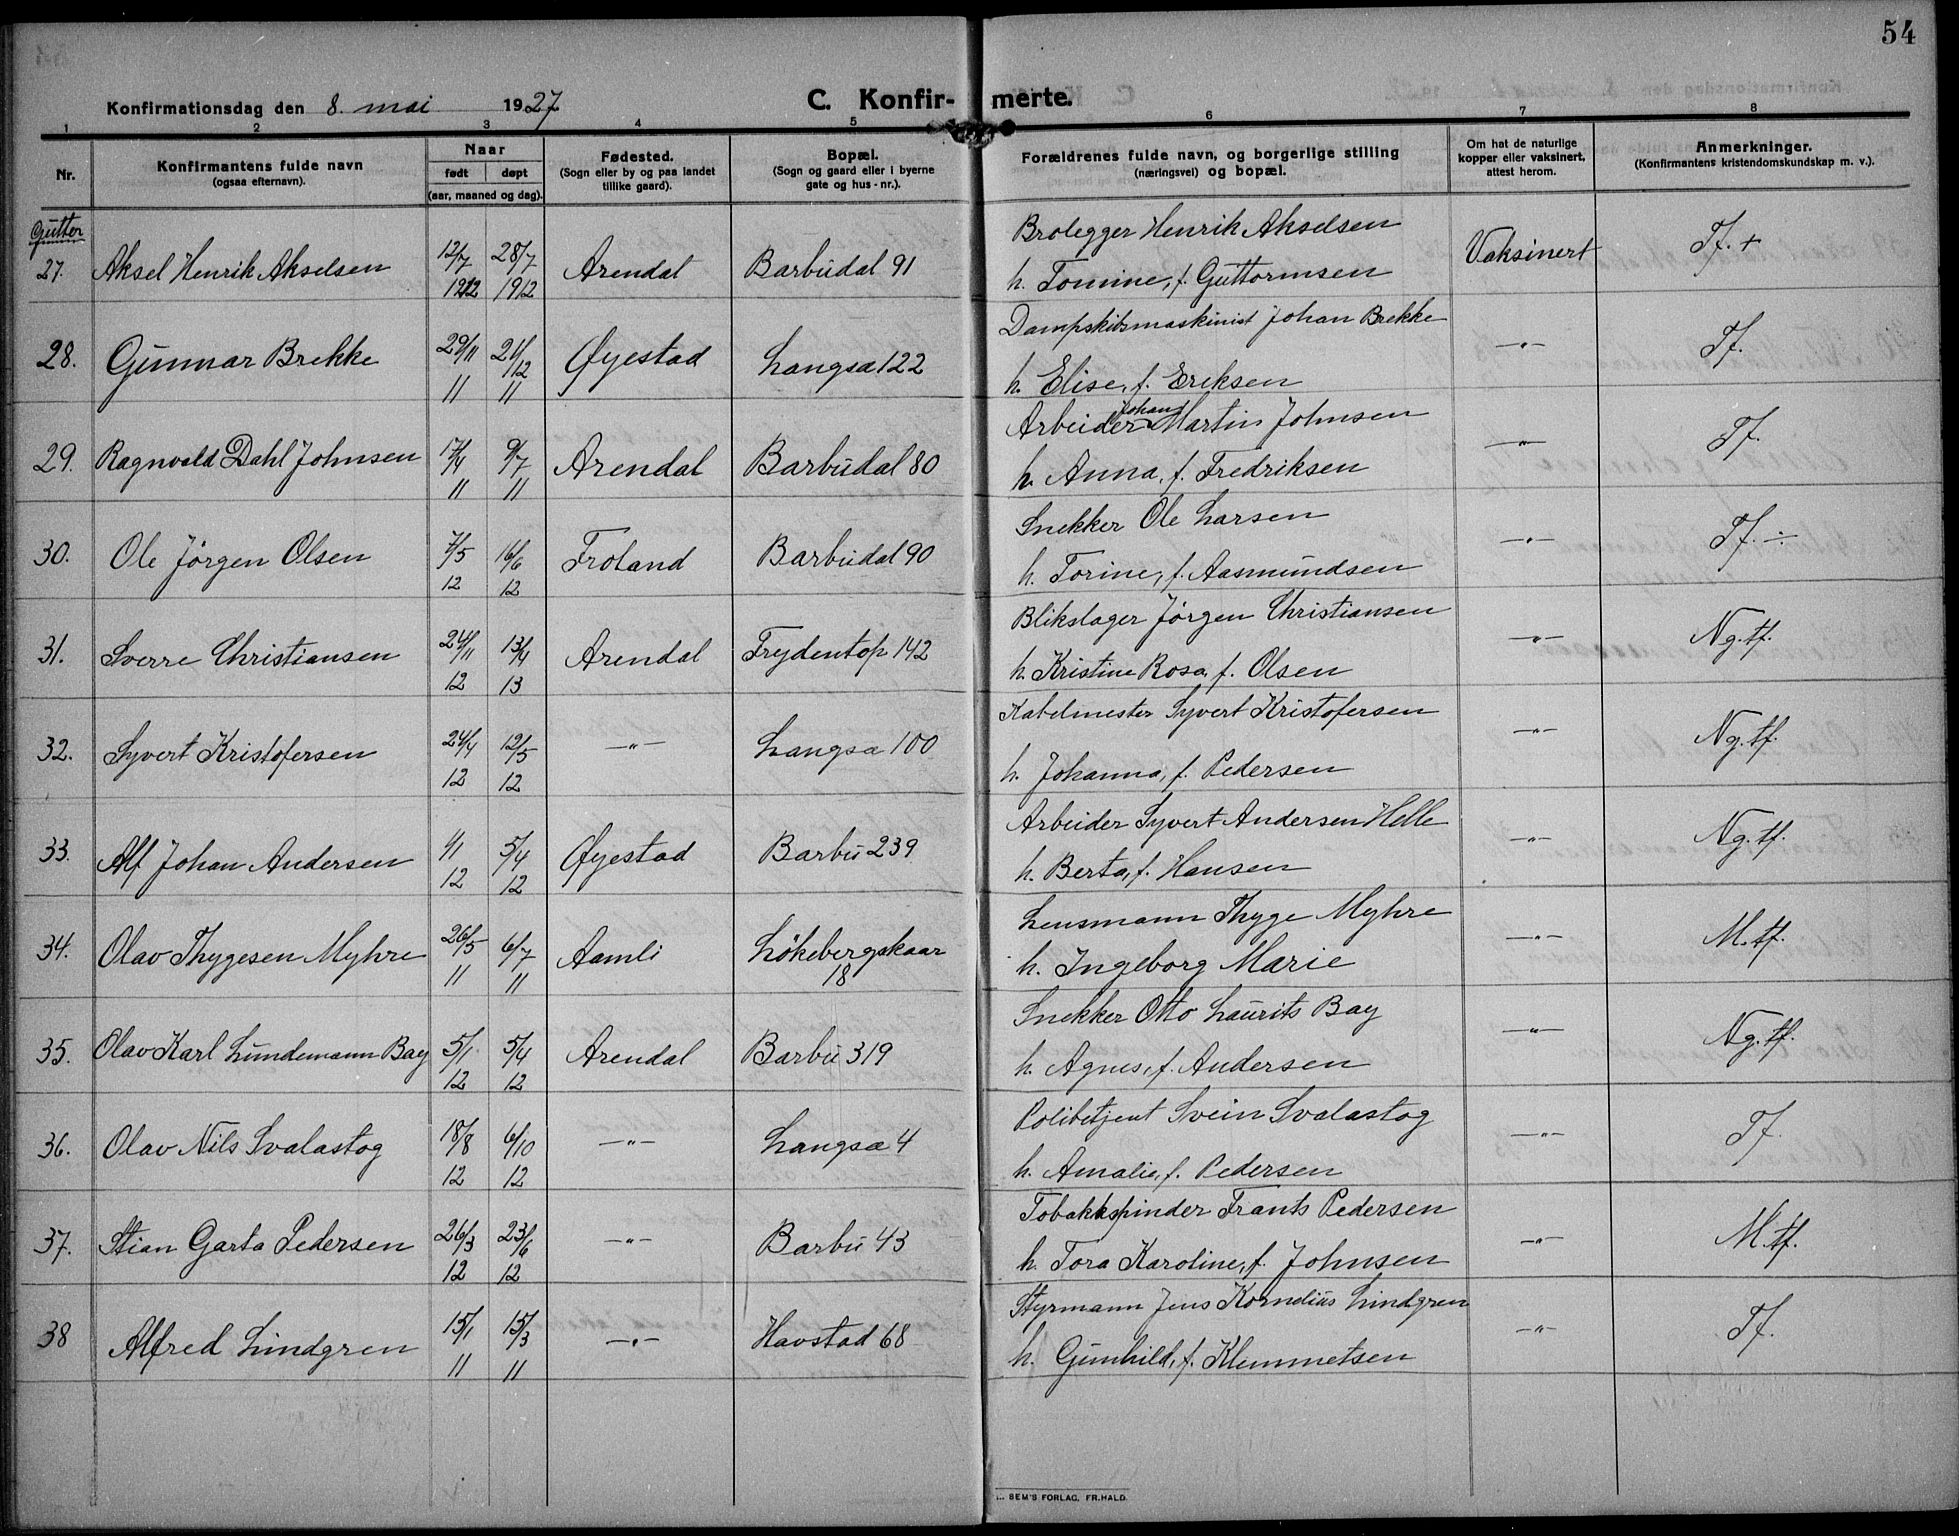 54
Konfirmationsdag den 8. mai 1927 C. Konfir- merte.
1 2 3 4 5 6 7 8
Nr. Konfirmantens fulde navn (ogsaa efternavn). Naar født døpt (aar, maaned og dag). Fødested. (Sogn eller by og paa landet tillike gaard). Bopæl. (Sogn og gaard eller i byerne gate og hus-nr.). Forældrenes fulde navn, og borgerlige stilling (næringsvei) og bopæl. Om hat de naturlige kopper eller vaksinert, attest herom. Anmerkninger. (Konfirmantens kristendomskundskap m. v.).
Gutter
Brolegger Henrik Akselsen
27. Aksel Henrik Akselsen 12/7 1912 28/7 1912 Arendal Barbudal 91 Vaksinert Tf. +
h. Tomine, f. Guttormsen
Dampskibsmaskinist Johan Brekke
28. Gunnar Brekke 29/11 11 21/12 11 Øyestad Langsæ 122 —"— Tf.
h. Elise, f. Eriksen
Arbeider Johan Martin Johnsen
29. Ragnvald Dahl Johnsen 17/4 11 9/7 11 Arendal Barbudal 80 —"— Tf.
h. Anna, f. Fredriksen
Snekker Ole Larsen
30. Ole Jørgen Olsen 7/5 12 16/6 12 Froland Barbudal 90 —"— Tf. ÷
h. Torine, f. Aasmundsen
Blikslager Jørgen Christiansen
31. Sverre Christiansen 24/11 12 13/4 13 Arendal Frydentop 142 —"— Ng. tf.
h. Kristine Rosa, f. Olsen
Kabelmester Syvert Kristofersen
32. Syvert Kristofersen 24/4 12 12/5 12 —"— Langsæ 100 —"— Ng. tf.
h. Johanna, f. Pedersen
Arbeider Syvert Andersen Helle
33. Alf Johan Andersen 1/1 12 5/4 12 Øyestad Barbu 239 —"— Ng. tf.
h. Berta, f. Hansen
Lensmann Thyge Myhre
34. Olav Thygesen Myhre 26/5 11 6/7 11 Aamli Løkebergskaar 18 —"— M. tf.
h. Ingeborg Marie
Snekker Otto Laurits Bay
35. Olav Karl Lundemann Bay 5/1 12 5/4 12 Arendal Barbu 319 —"— Ng. tf.
h. Agnes, f. Andersen
Politibetjent Svein Svalastog
36. Olav Nils Svalastog 18/8 12 6/10 12 —"— Langsæ 4 —"— Tf.
h. Amalie, f. Pedersen
Tobakkspinder Frants Pedersen
37. Stian Garta Pedersen 26/3 12 23/6 12 —"— Barbu 43 —"— M. tf.
h. Tora Karoline, f. Johnsen
Styrmann Jens Kornelius Lindgren
38 Alfred Lindgren 15/1 11 15/3 11 —"— Havstad 68 —"— Tf.
h. Gunhild, f. Klemmetsen
SEM'S FORLAG, FR.HALD.